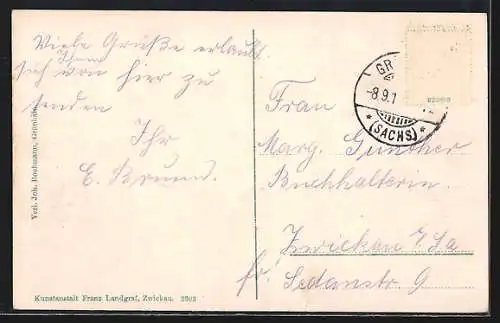 Viele Grüße erlaubt
Ihnen
sich von hier zu
senden
Ihr
E. Brund.
Frau
Marg. Günther
Buchhalterin.
Zwickau i/Sa
Sedanstr. 9
fr.
GR
-8.9.1
* (SACHS) *
Verl. Joh.
Kunstanstalt Franz Landgraf, Zwickau.